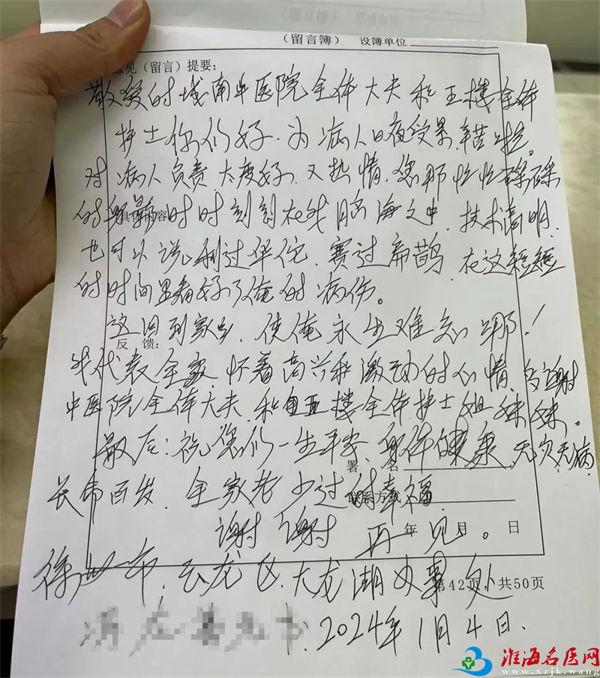 （留言簿） 设簿单位
意见（留言）提要：
敬爱的城南中医院全体大夫和五楼全体
护士你们好。为病人日夜受累，辛苦啦。
对病人负责，大度好，又热情，您那忙忙碌碌
的身影时时刻刻在我脑海之中，技术高明，
也可以说刷过华佗，赛过扁鹊，在这短短
的时间里看好了俺的病伤。
这回到家乡，使俺永生难忘
反 馈：
我代表全家怀着高兴和激动的心情，多谢
中医院全体大夫，和五楼全体护士姐妹妹。
最后：祝您们一生平安，身体健康，无灾无病，
署 名
长命百岁，全家老少过得幸福
联系方式
谢谢 再见。
年 月 日
徐州市，云龙区，大龙湖办事处
第42页，共50页
2024年1月4日.
淮海名医网
www.xzjk.wang